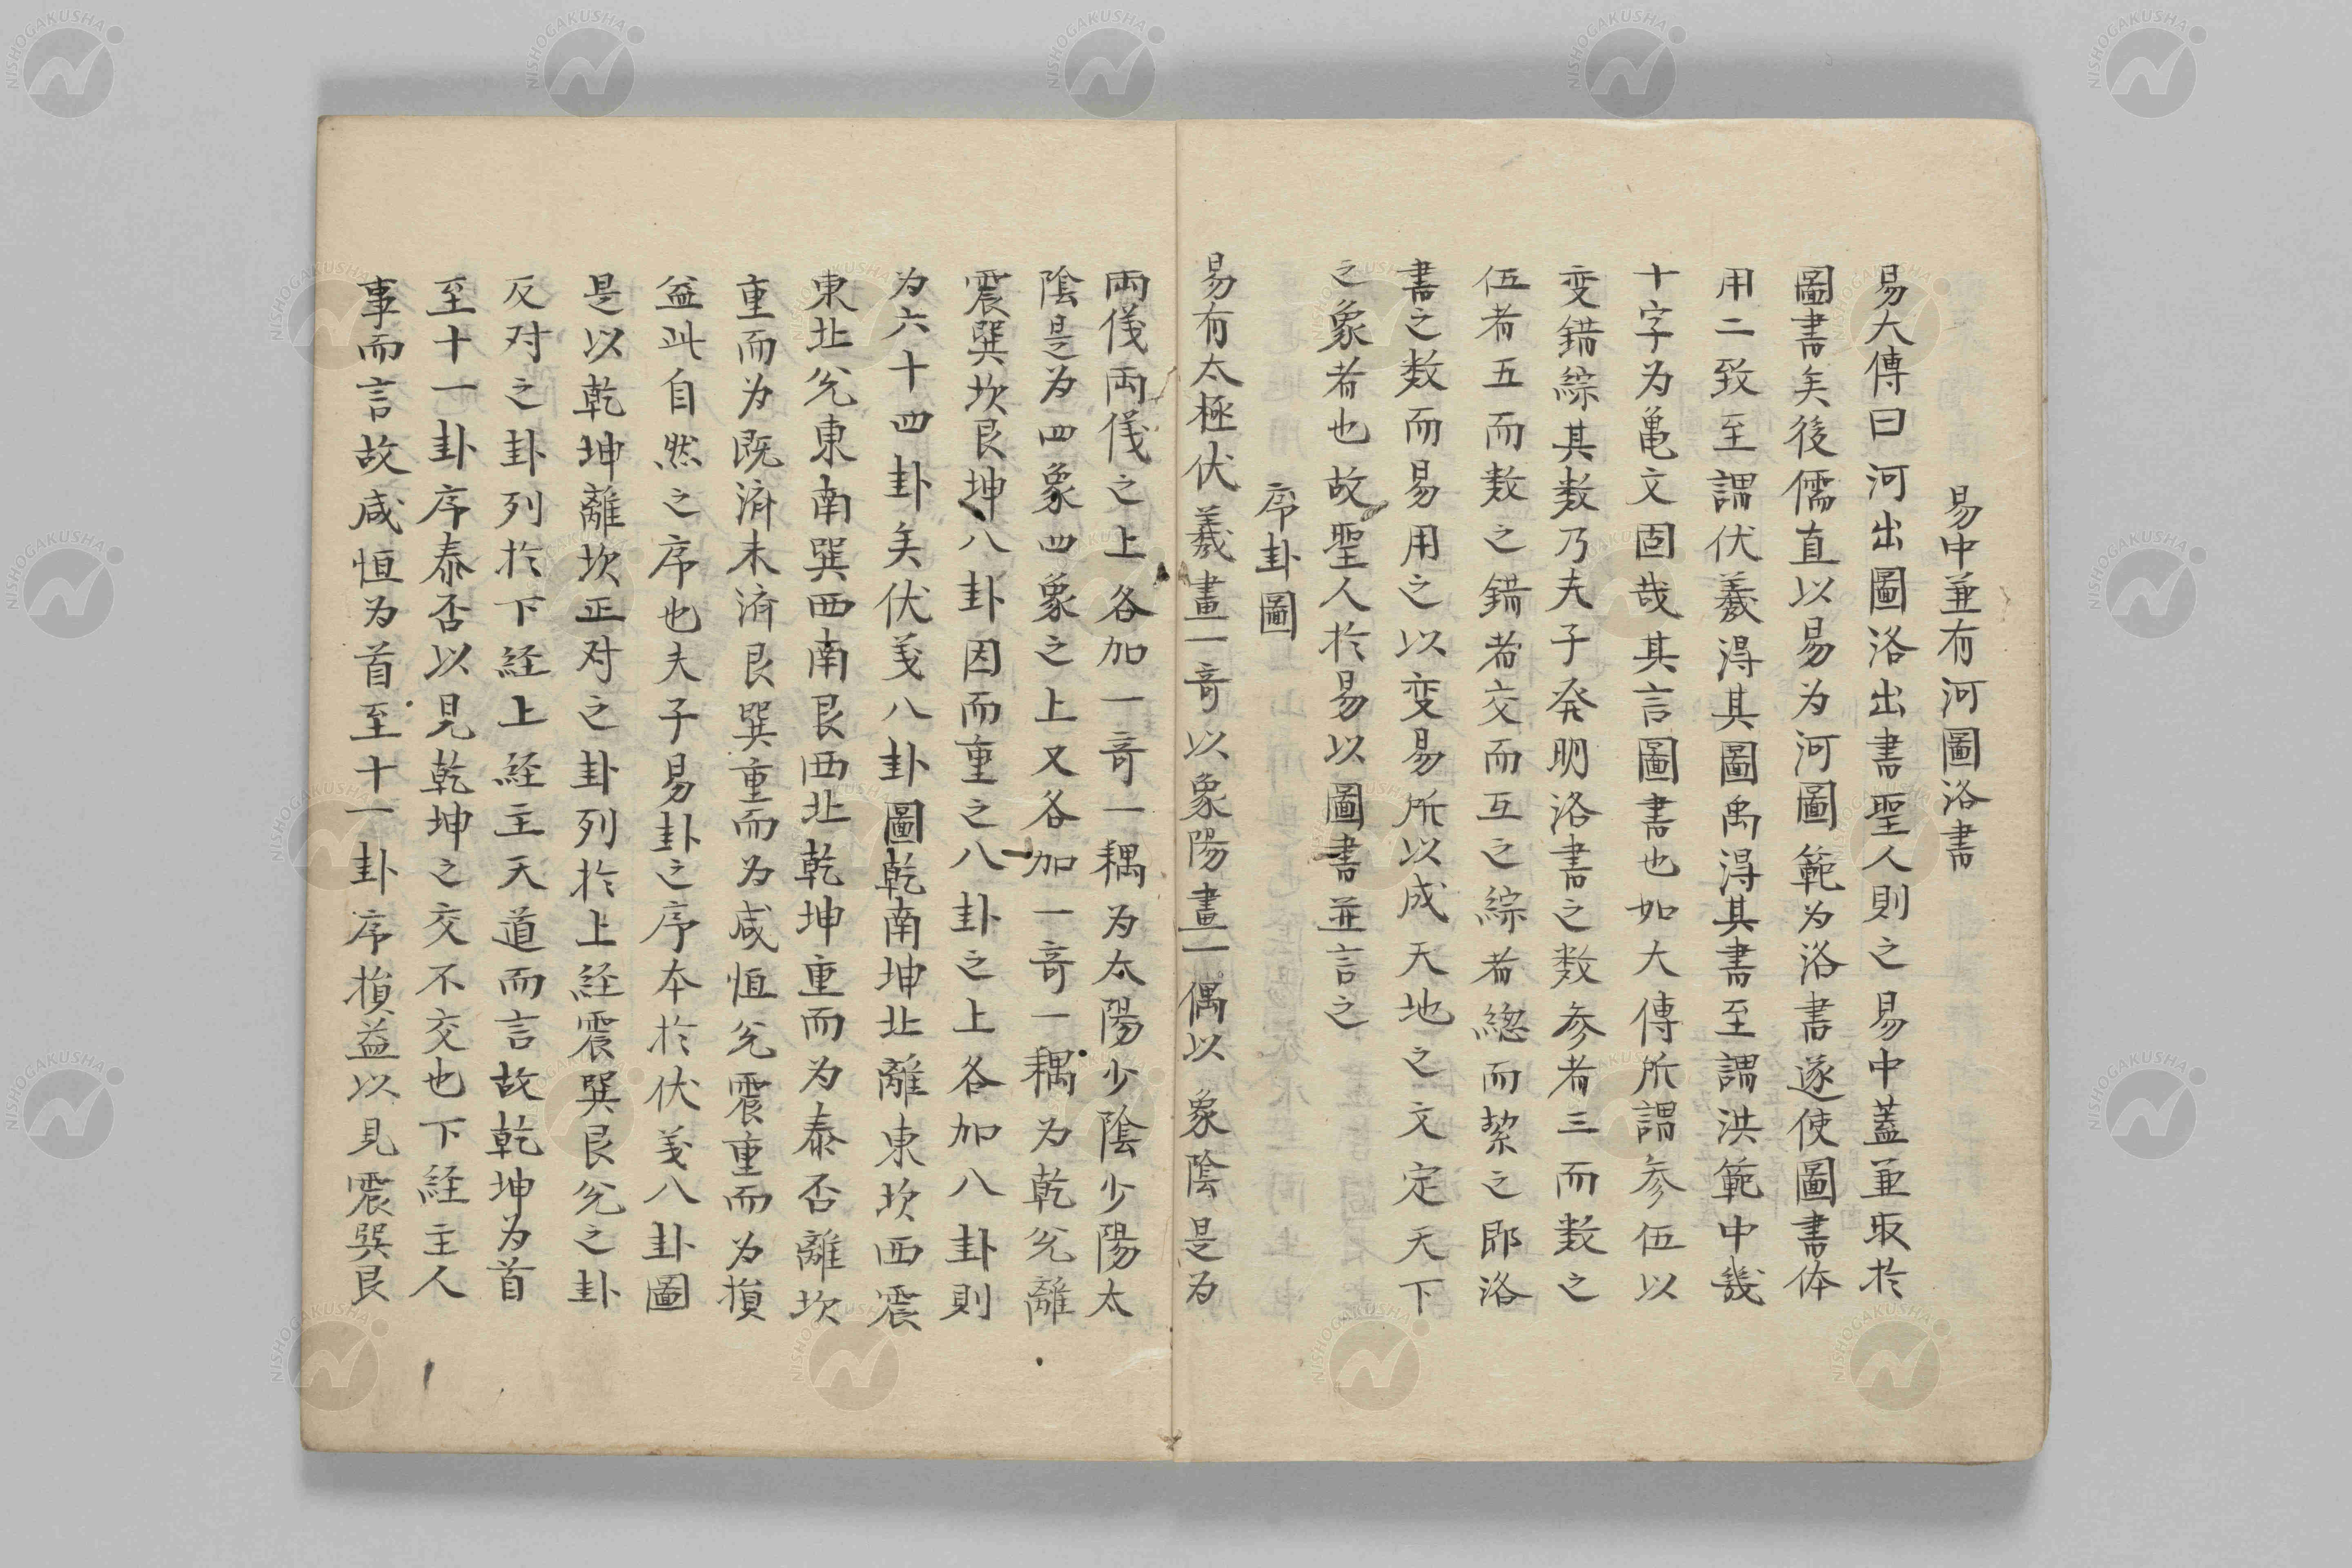 易中兼有河圖洛書
易大傳曰河出圖洛出書聖人則之易中蓋兼取於
圖書矣後儒直以易为河圖範为洛書遂使圖書体
用二致至謂伏羲淂其圖禹淂其書至謂洪範中幾
十字为亀文固哉其言圖書也如大傳所謂參伍以
变錯綜其数乃夫子発明洛書之数参者三而数之
伍者五而数之錯者交而互之綜者緫而絜之即洛
書之数而易用之以变易所以成天地之文定天下
之象者也故聖人於易以圖書並言之
序卦圖
易有太極伏羲畫一竒以象陽畫一偶以象陰是为
兩儀兩儀之上各加一竒一耦为太陽少陰少陽太
陰是为四象四象之上又各加一竒一耦为乾兊離
震巽坎艮坤八卦因而重之八卦之上各加八卦則
为六十四卦矣伏羲八卦圖乾南坤北離東坎西震
東北兊東南巽西南艮西北乾坤重而为泰否離坎
重而为既済未済艮巽重而为咸恒兊震重而为損
益此自然之序也夫子易卦之序本於伏羲八卦圖
是以乾坤離坎正对之卦列於上経震巽艮兊之卦
反对之卦列於下経上経主天道而言故乾坤为首
至十一卦序泰否以見乾坤之交不交也下経主人
事而言故咸恒为首至十一卦序損益以見震巽艮
NISHOGAKUSHA